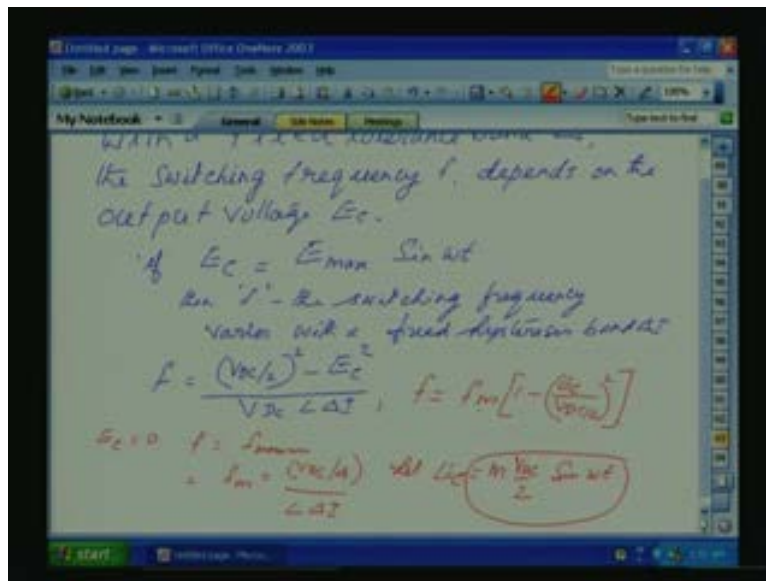 Untitled page - Microsoft Office OneNote 2003
File Edit View Insert Format Tools Window Help
Type a question for help
100%
My Notebook General Side Notes Meetings
Type text to find
With a fixed tolerance band
the Switching frequency f, depends on the
output Voltage Ec.
If Ec = Emax Sin wt
then 'f' - the switching frequency
varies with a fixed hysteresis band ΔI
f = ((VDC/2)² - Ec²) / (VDC L ΔI), f = fm [1 - (Ec / (VDC/2))²]
Ec = 0 f = fmaxm
= fm = (VDC/4) / (L ΔI) let Ec = m VDC/2 Sin wt
start